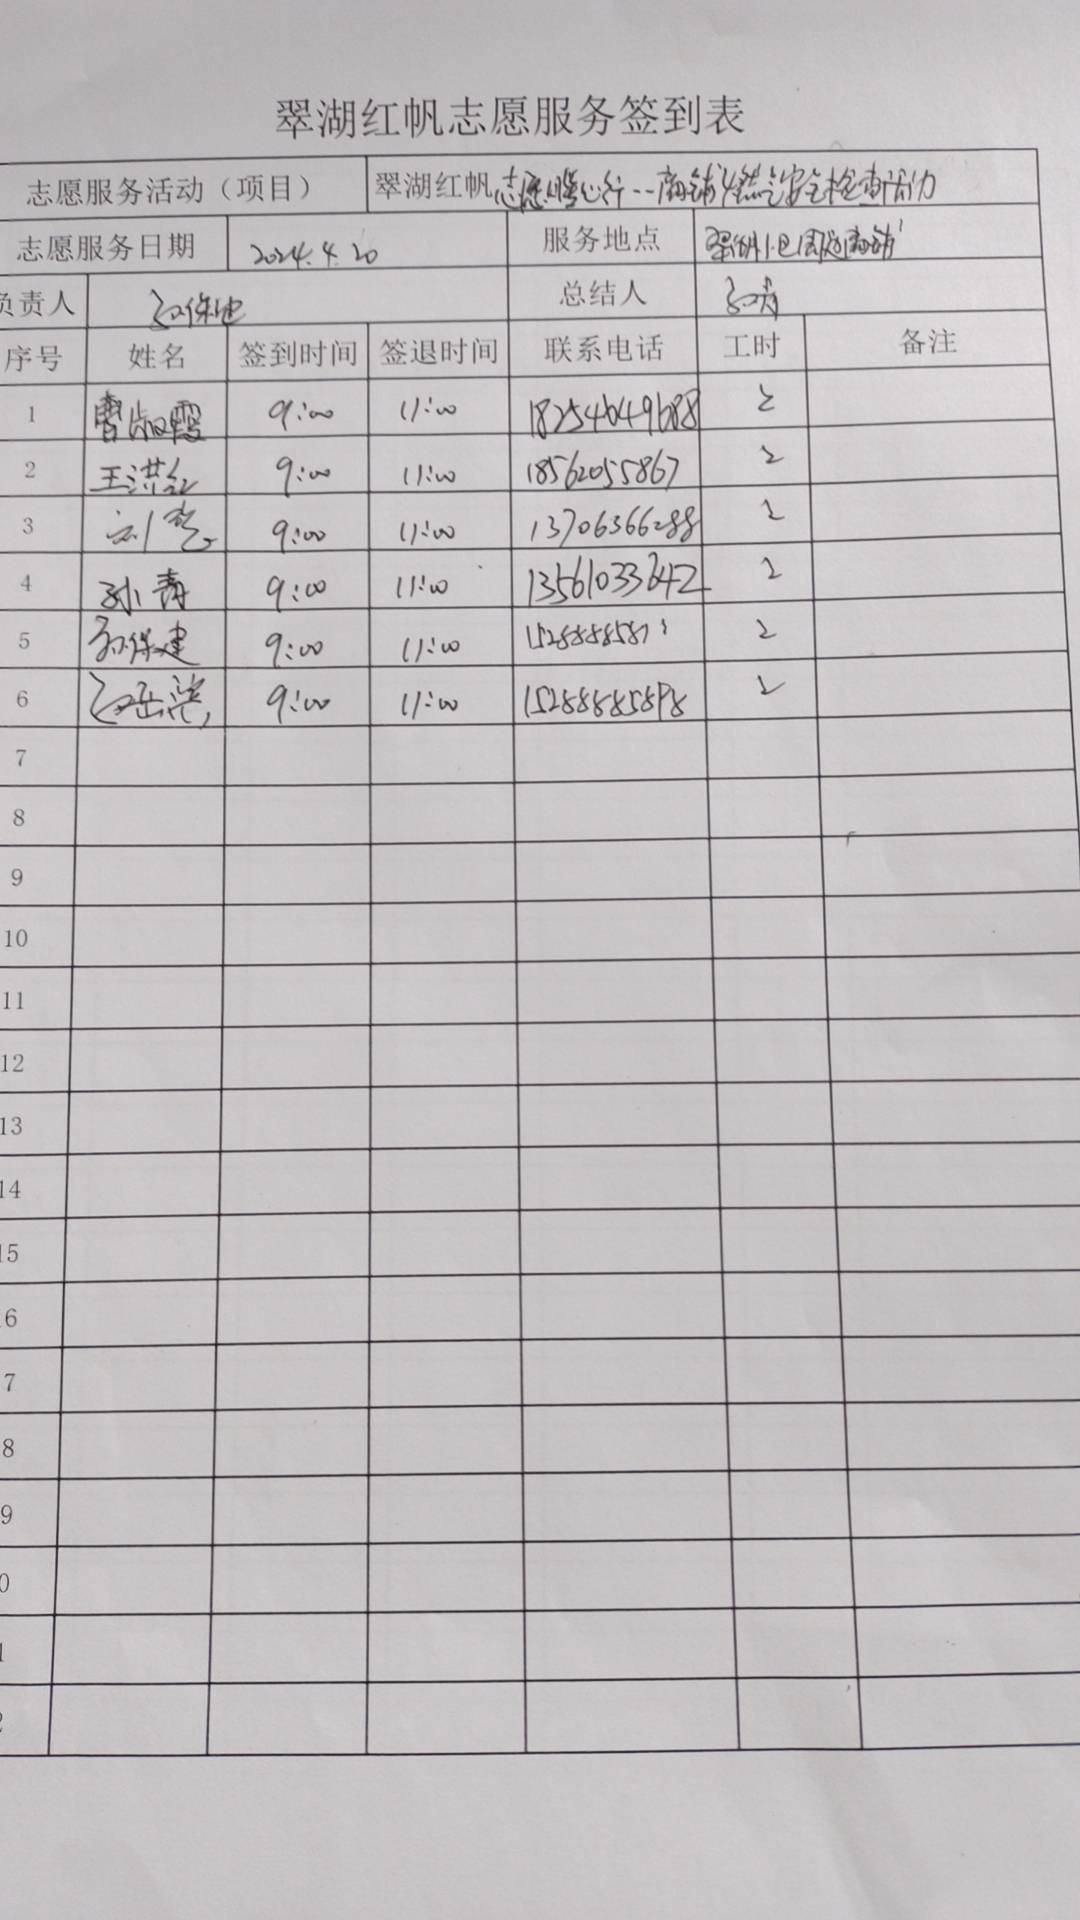 翠湖红帆志愿服务签到表
志愿服务活动（项目） 翠湖红帆志愿暖心行--商铺燃气安全检查活动
志愿服务日期 2024.4.20 服务地点 翠湖周边商铺
负责人 孙保 总结人 孙青
序号 姓名 签到时间 签退时间 联系电话 工时 备注
1 曹淑霞 9:00 11:00 18254649688 2
2 王洪红 9:00 11:00 18562055867 2
3 刘 9:00 11:00 13706366288 2
4 孙青 9:00 11:00 13561033642 2
5 孙保建 9:00 11:00 2
6 9:00 11:00 15288885898 2
7
8
9
10
11
12
13
14
15
6
7
8
9
0
1
2